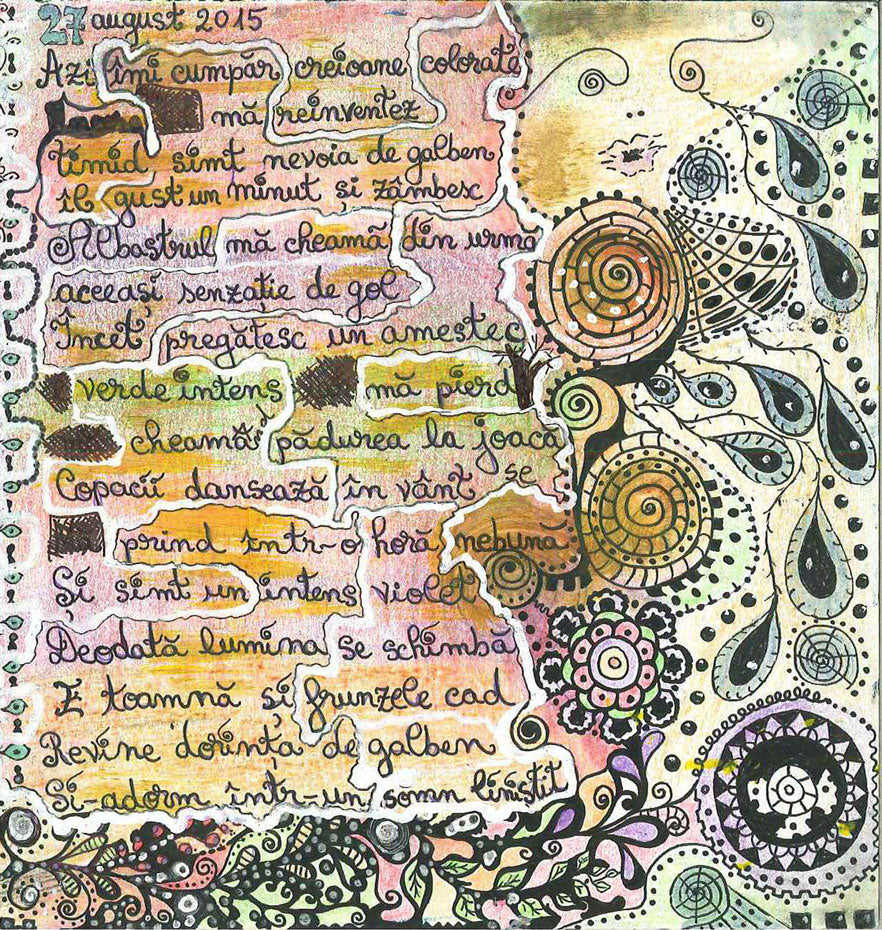 27 august 2015
Azi îmi cumpăr creioane colorate
mă reinventez
timid simt nevoia de galben
îl gust un minut și zâmbesc
Albastrul mă cheamă din urmă
aceeași senzație de gol
Încet pregătesc un amestec
verde intens mă pierd
cheamă pădurea la joacă
Copacii dansează în vânt se
prind într-o horă nebună
Și simt un intens violet
Deodată lumina se schimbă
E toamnă și frunzele cad
Revine dorința de galben
Și-adorm într-un somn liniștit